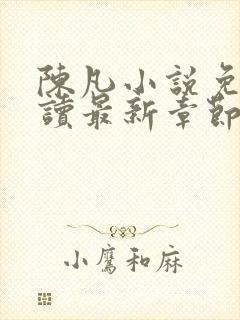 陳凡小說免
讀最新章節
小鷹和麻